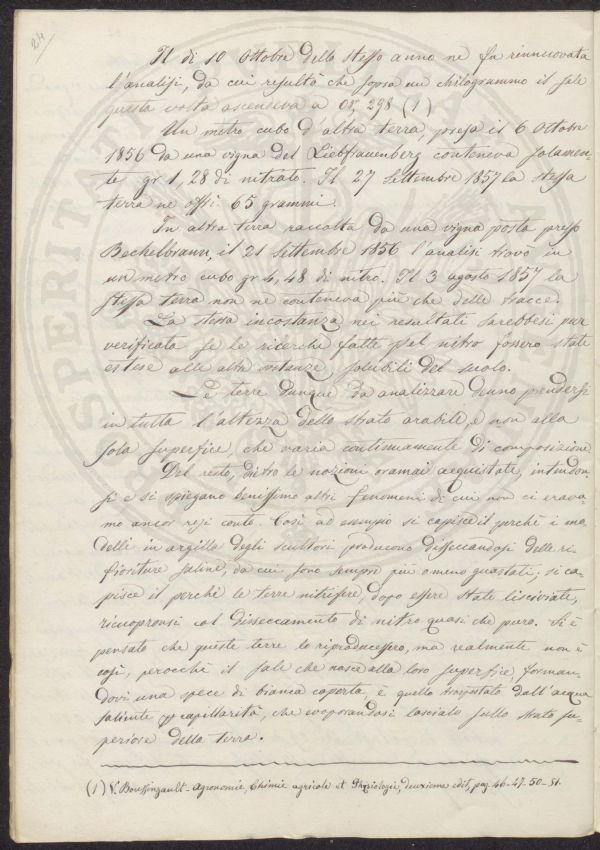 24
Il di 10 Ottobre dello stesso anno ne fu rinnuovata
l'analisi, da cui resultò che sopra un chilogrammo il sale
questa volta ascendeva a Gr, 298 (1)
Un metro cubo d'altra terra, presa il 6 Ottobre
1856 da una vigna del Liebfrauenberg conteneva solamen-
te gr 1, 28 di nitrato. Il 27 Settembre 1857 la stessa
terra ne offrì 65 grammi.
In altra terra raccolta da una vigna posta presso
Bechelbrann, il 21 Settembre 1856 l'analisi trovò in
un metro cubo gr 4, 48 di nitro. Il 3 agosto 1857 la
stessa terra non ne conteneva più che delle tracce.
La stessa incostanza nei resultati sarebbesi pur
verificata se le ricerche fatte pel nitro fossero state
estese alle altre sostanze solubili del suolo.
Le terre dunque da analizzare denno prendersi
in tutta l'altezza dello strato arabile, e non alla
sola superfice, che varia continuamente di composizione.
Del resto, dietro le nozioni oramai acquistate, intendon-
si e si spiegano benissimo altri fenomeni di cui non ci erava-
mo ancor resi conto. Così ad esempio si capisce il perchè i mo-
delli in argilla degli scultori producono disseccandosi delle ri-
fioriture saline, da cui sono sempre più o meno guastati; si ca-
pisce il perchè le terre nitrifere, dopo essere state lisciviate,
ricuopronsi col disseccamento di nitro quasi che puro. Si è
pensato che queste terre lo riproducessero, ma realmente non è
così, perocchè il sale che nasce alla loro superfice, forman-
dovi una spece di bianca coperta, è quello trasportato dall'acqua
saliente per capillarità, che evaporandosi lascialo sullo strato su-
periore della terra.
(1) V. Boussingault - Agronomie, Chimie agricole et Physiologie, deuxieme edit, pag. 46-47-50-51.
SPERITATI